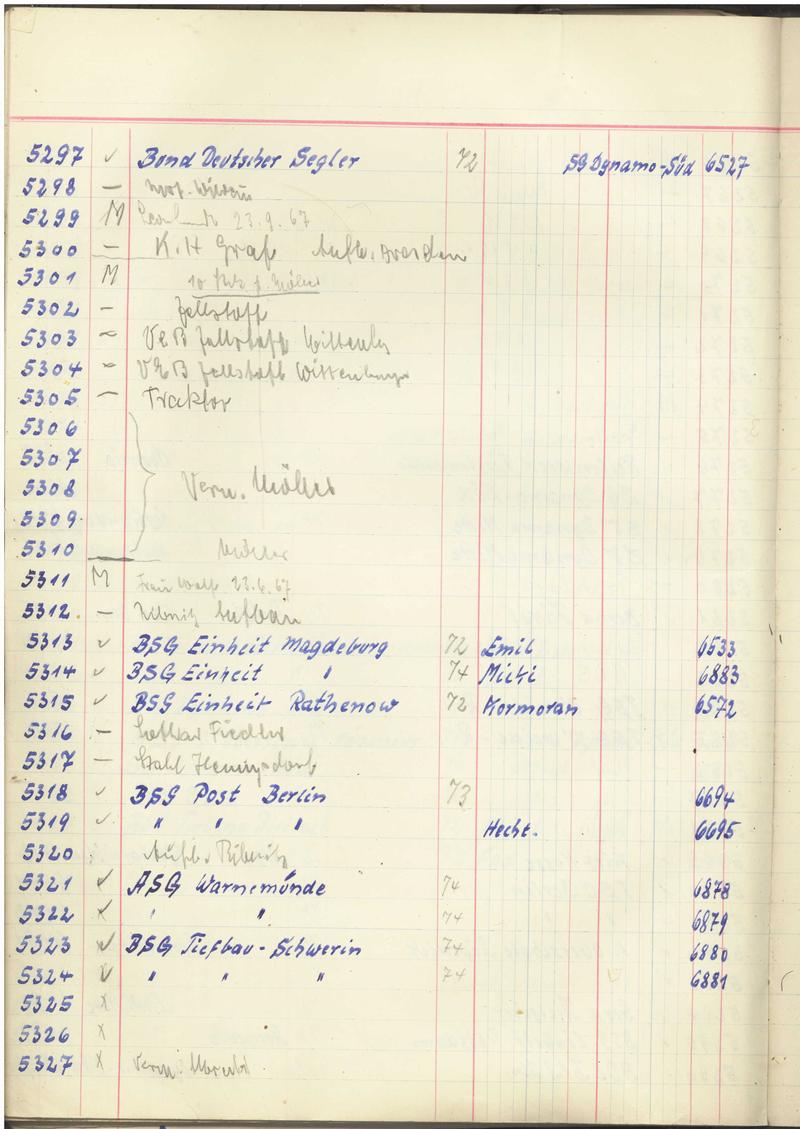 5297 ✓ Bund Deutscher Segler 72 SG Dynamo-Süd 6527
5298 —
5299 M 23.9.67
5300 — K.H Graf Aufb.
5301 M 10
5302 — Zellstoff
5303 — VEB Zellstoff
5304 — VEB Zellstoff Wittenberge
5305 — Traktor
5306
5307
5308 Verm. Möller
5309
5310 Möller
5311 M Frau Wolf 23.6.67
5312 — Aufbau
5313 ✓ BSG Einheit Magdeburg 72 Emil 6533
5314 ✓ BSG Einheit " 74 Micki 6883
5315 ✓ BSG Einheit Rathenow 72 Kormoran 6572
5316 — Lothar Fiedler
5317 — Stahl Hennigsdorf
5318 ✓ BSG Post Berlin 73 6694
5319 ✓ " " " Hecht. 6695
5320 Aufb. Ribnitz
5321 ✓ ASG Warnemünde 74 6878
5322 ✓ " " 74 6879
5323 ✓ BSG Tiefbau-Schwerin 74 6880
5324 ✓ " " " 74 6881
5325 x
5326 x
5327 x Verm.